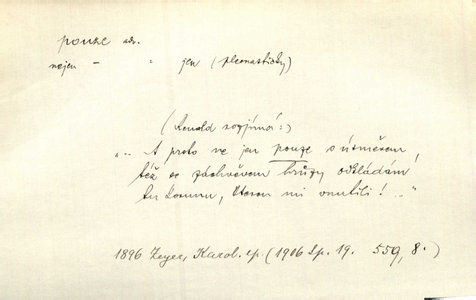 pouze adv.
nejen - " jen (pleonasticky)
(Renald rozjímá:)
"... A proto ne jen pouze s úsměvem,
též se záchvěvem hrůzy odkládám
tu korunu, kterou mi vnutili! ..."
1896 Zeyer, Karol. ep. (1906 Sp. 19. 559, 8.)